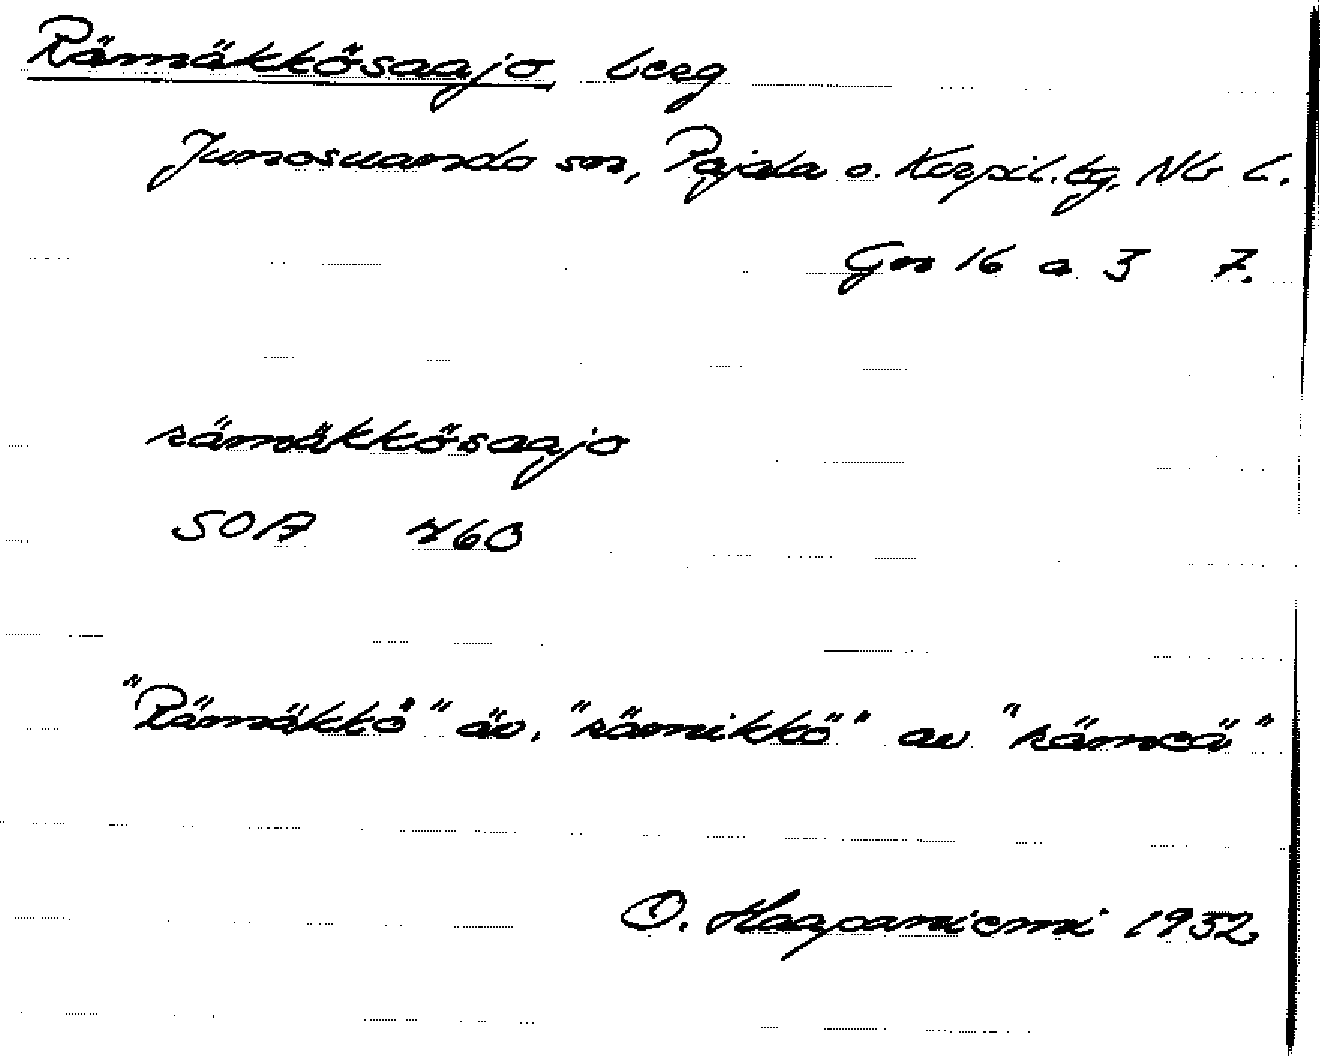 Rämäkkösaajo berg
Junosuando sn, Pajala o. Korpil. tg, Nb l.
Gn 16 a 3 7.
rämäkkösaajo
SOA 760
"Rämäkkö" äv. "rämikkö" av "rämeä"
O. Haapaniemi 1932